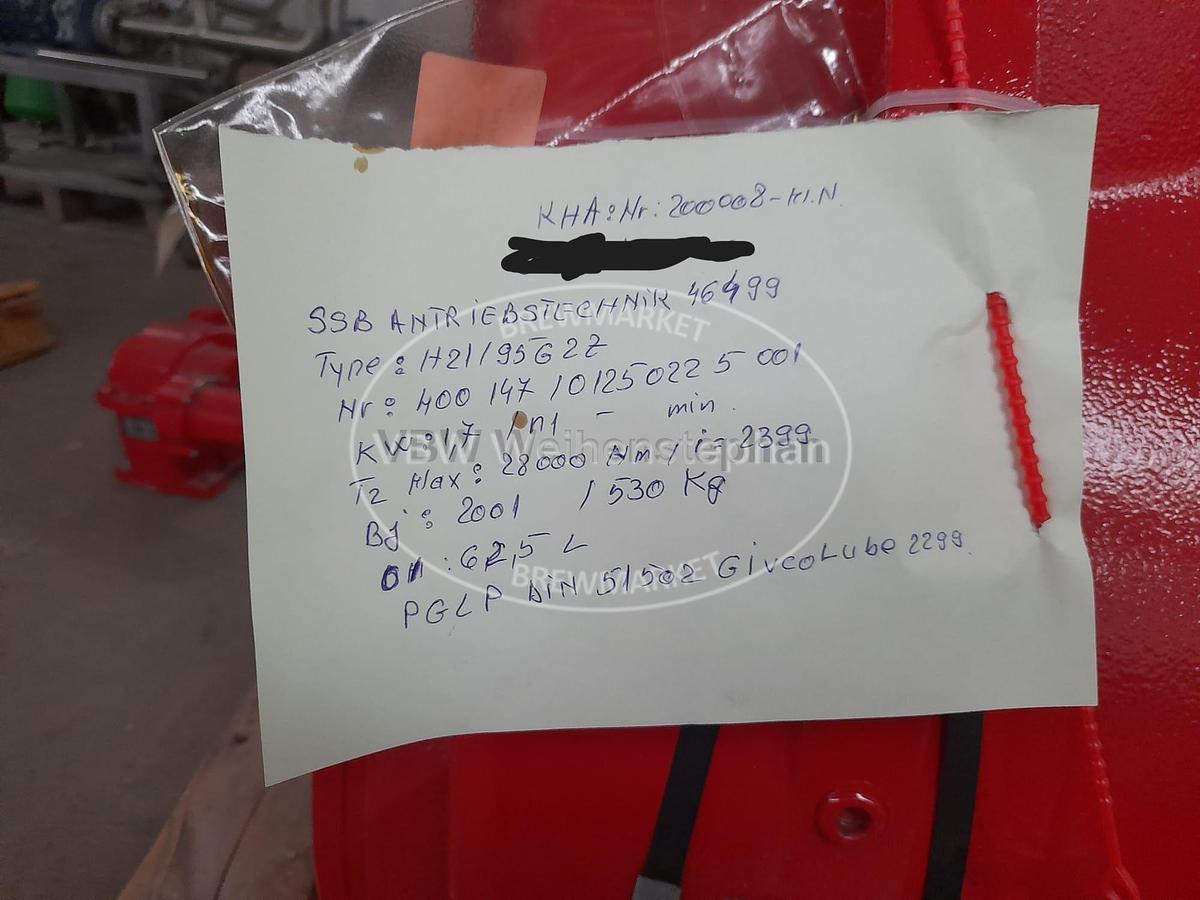 KHA:Nr: 200008-KI.N.
SSB ANTRIEBSTECHNIK 46499
BREWMARKET
Type: H21/95G2Z
Nr: 400 147 10125022 5 001
Kw: 1,7 / n1 - min.
VBW Weihenstephan
T2 Max: 28000 Nm / i= 2399
Bj: 2001 / 530 Kg
Oil: 62,5 L
BREWMARKET
PGLP DIN 51502 GivcoLube 2299